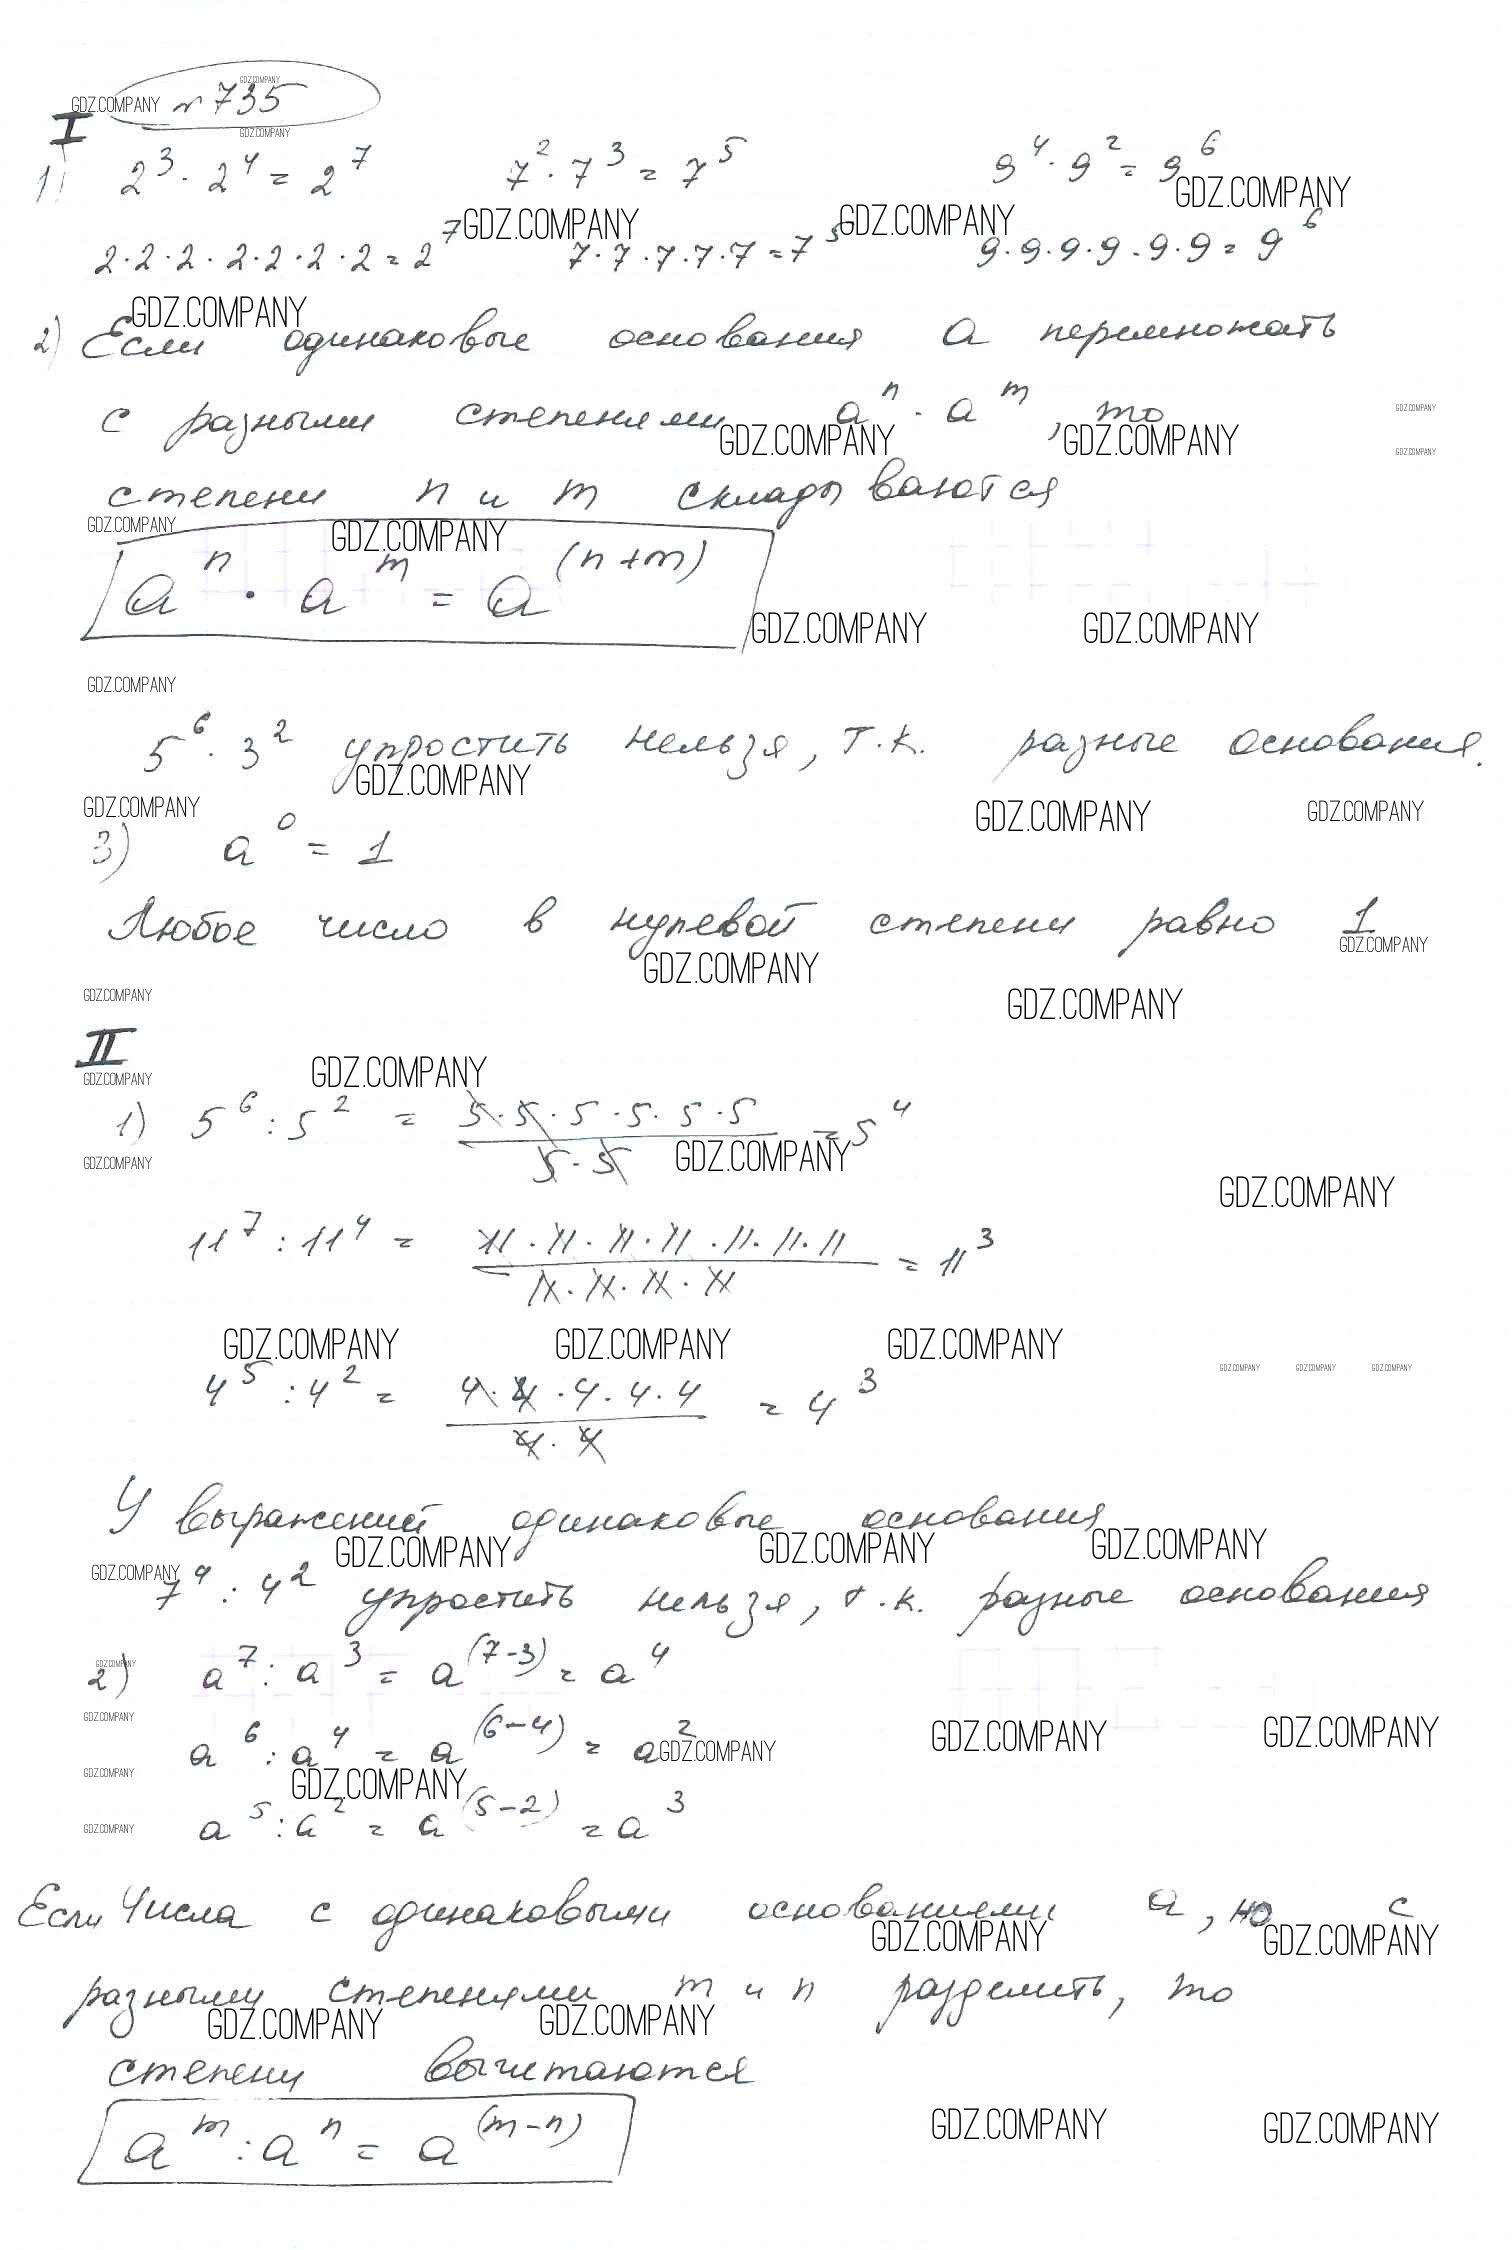 № 735
I
1) 2³ · 2⁴ = 2⁷ 7² · 7³ = 7⁵ 9⁴ · 9² = 9⁶
2·2·2·2·2·2·2 = 2⁷ 7·7·7·7·7 = 7⁵ 9·9·9·9·9·9 = 9⁶
2) Если одинаковые основания a перемножать
с разными степенями aⁿ · aᵐ, то
степени n и m складываются
aⁿ · aᵐ = a⁽ⁿ⁺ᵐ⁾
5⁶ · 3² упростить нельзя, т.к. разные основания.
3) a⁰ = 1
Любое число в нулевой степени равно 1
II
1) 5⁶ : 5² = (5·5·5·5·5·5)/(5·5) = 5⁴
11⁷ : 11⁴ = (11·11·11·11·11·11·11)/(11·11·11·11) = 11³
4⁵ : 4² = (4·4·4·4·4)/(4·4) = 4³
У выражений одинаковые основания
7⁴ : 4² упростить нельзя, т.к. разные основания
2) a⁷ : a³ = a⁽⁷⁻³⁾ = a⁴
a⁶ : a⁴ = a⁽⁶⁻⁴⁾ = a²
a⁵ : a² = a⁽⁵⁻²⁾ = a³
Если числа с одинаковыми основаниями a, но с
разными степенями m и n разделить, то
степени вычетаются
aᵐ : aⁿ = a⁽ᵐ⁻ⁿ⁾
GDZ.COMPANY